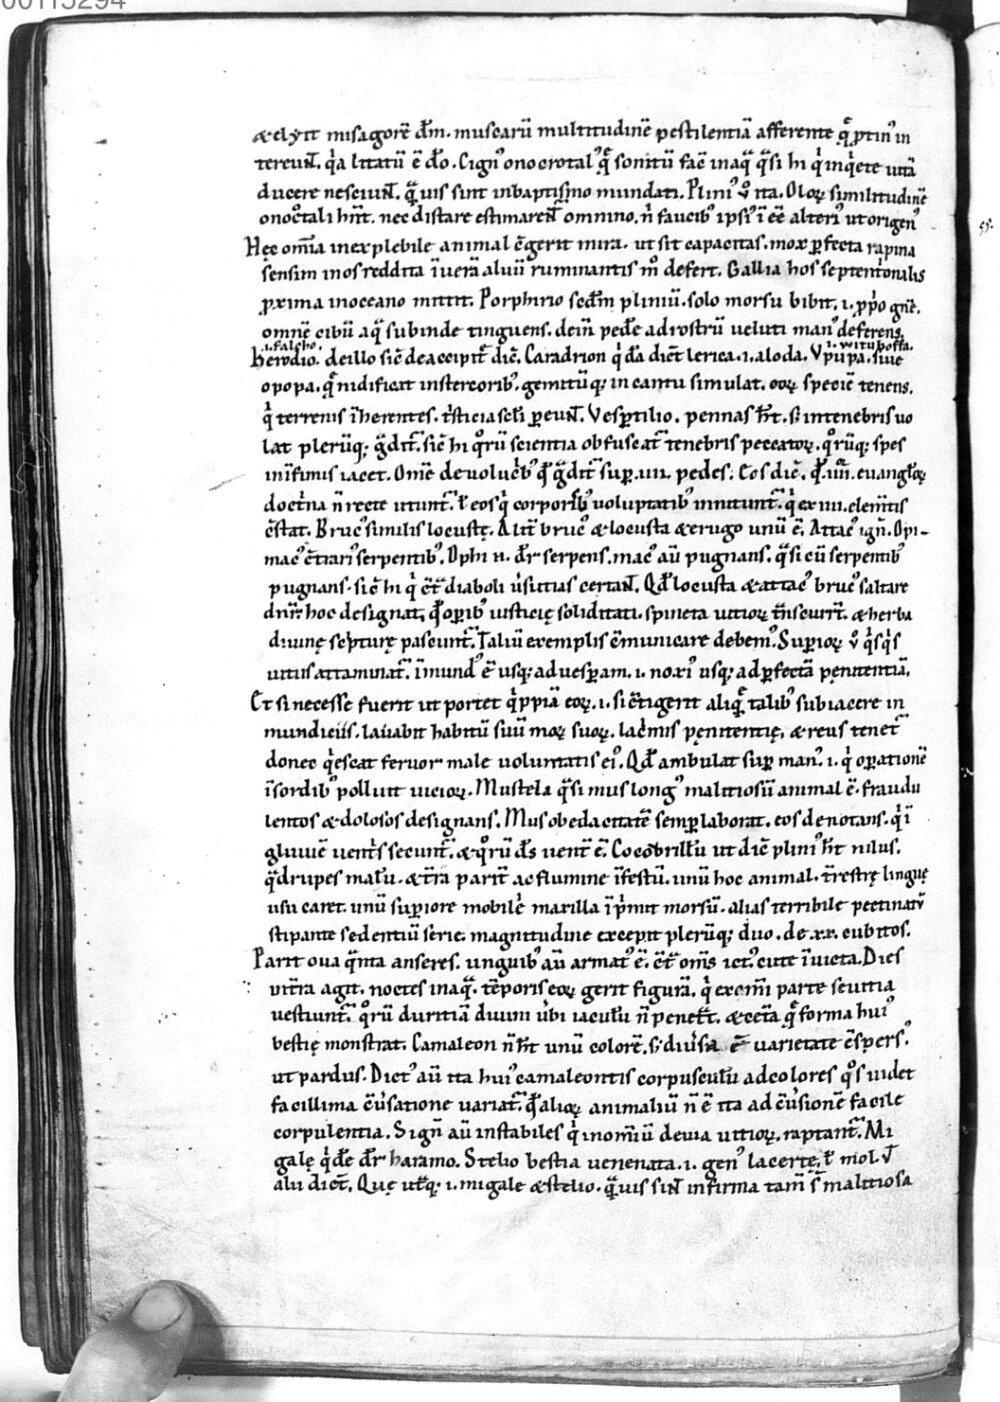 00115294
& elyit misagorē dm̄. muscarū multitudinē pestilentiā afferente q̄ ptin' in
tereunt. q̇a litatū ē dō. Cign' onocrotal' q̄ sonitū fac̄ in aq̄ q̄si hi q̇ inq̇ete uitā
ducere nesciunt. q̄uis sint in baptismo mundati. Plini' v̊ ita. Oloꝝ similitudinē
onoc̊tali hn̄t. nec distare estimarent̄ omnino. n̄ faucib' ipsi' ī eē alteri' ut origen'
Hęc omīa inexplebile animal c̄gerit mira. ut sit capacitas. mox ꝑfecta rapina
sensim in os reddita ī uerā aluū ruminantis m̊ defert. Gallia hos septent'onalis
ꝓxima in oceano mittit. Porphirio scdm̄ pliniū. solo morsu bibit. .i. ꝓp'o gn̄e.
omnē cibū aq̄ subinde tinguens. dein̄ pede ad rostrū ueluti man' deferens.
.i. falcho. .i. wituhoffa.
Herodio. de illo sic̄ de accipit̄ dic̄. Caradrion q̇dā dic̄t lerica .i. aloda. Vpupa. siue
opopa. q̄ nidificat in stercorib'. gemitūq; in cantu simulat. eoꝝ speciē tenens.
q̇ terrenis īherentes. t'sticia sc̄li ꝑeunt. Vesꝑtilio. pennas ht̄. s; in tenebris uo
lat plerūq; ḡdit̄. sic̄ hi q°rū scientia obfuscat̄ tenebris peccatoꝝ. q°rūq; spes
in īfimis iacet. Om̄e de uolucb' qd̄ ḡdit̄ suꝑ .iiii. pedes; Eos dic̄. qd̄ .iiii. euangl̄oꝝ
doct'na n̄ recte utunt̄. ł eos q̇ corporib' uoluptatib' innitunt̄. q̇ ex .iiii. elem̄tis
c̄stat. Bruc' similis locustę. Alit̄ bruc' & locusta & erugo unū ē. Attac' ign̄. Opi-
mac' c̄trari' serpentib'. Ophi n. dr̄ serpens. mac' aū pugnans. q̄si cū serpentib'
pugnans. sic̄ hi q̇ c̄t̄ diaboli v̄sutias certant. Qd̄ locusta & attac' bruc' saltare
dnr̄. hoc designat. qd̄ oꝑib' iusticię soliditati. spineta uitioꝝ t̄nscurrt̄. & herba
diuinę sc̄pturę pascunt̄. Taliū exemplis c̄municare debem'. Supioꝝ v̊ q̇sq̇s
uitiis attaminat̄. īmund' ē usq; ad uesꝑam .i. noxi' usq; ad ꝑfectā pęnitentiā.
Et si necesse fuerit ut portet q̇ppiā eoꝝ .i. si c̄tigerit aliq̄ talib' subiacere in
mundiciis. lauabit habitū suū moꝝ suoꝝ. lac'mis pęnitentię. & reus tenet̄
donec q̇escat feruor male uoluntatis ei'. Qd̄ ambulat suꝑ man' .i. q̇ oꝑationē
ī sordib' polluit uicioꝝ. Mustela q̄si mus long' malitiosū animal ē. fraudu
lentos & dolosos designans. Mus ob edacitatē semꝑ laborat. eos denotans. q̇ ī
gluuiē uent̄s secunt̄. & q°rū ds̄ uent̄ ē. Cocodrillū ut dic̄ plini' ht̄ nilus.
q̄drupes malū. & t̄ra parit̄ ac flumine īfestū. unū hoc animal. t̄restrę linguę
usu caret. unū supiore mobilē maxilla īp'mit morsū. alias terribile pectinatī
stipante se dentiū serie. magnitudine excepit plerūq; duo. de .xx. cubitos.
Parit oua q̄nta anseres. unguib' aū armat' ē. c̄t̄ oms̄ ict' cute īuicta. Dies
ī t̄ra agit. noctes in aq̄. tēporis eoꝝ gerit figurā. q̇ ex om̄i parte seuitia
uestiunt̄. q°rū duritiā diuini v̄bi iaculū n̄ penet̄t. & cet̄a q̄ forma hui'
bestię monstrat. Camaleon n̄ ht̄ unū colorē. s; diu'sa ē uarietate c̄spers'
ut pardus. Dict' aū ita hui' camaleontis corpusculū ad colores q°s uidet
facillima c̄u'satione uariat̄. qd̄ alioꝝ animaliū n̄ ē ita ad c̄u'sionē facile
corpulentia. Sign̄ aū instabiles q̇ in om̄iū deuia uitioꝝ. raptant̄. Mi
galę q̇de dr̄ haramo. Stelio bestia uenenata .i. gen' lacertę. ł mol. v̄
alii dic̄t. Quę utq; .i. migale & stelio. q̄uis sint infirma tam̄ s̄ malitiosa